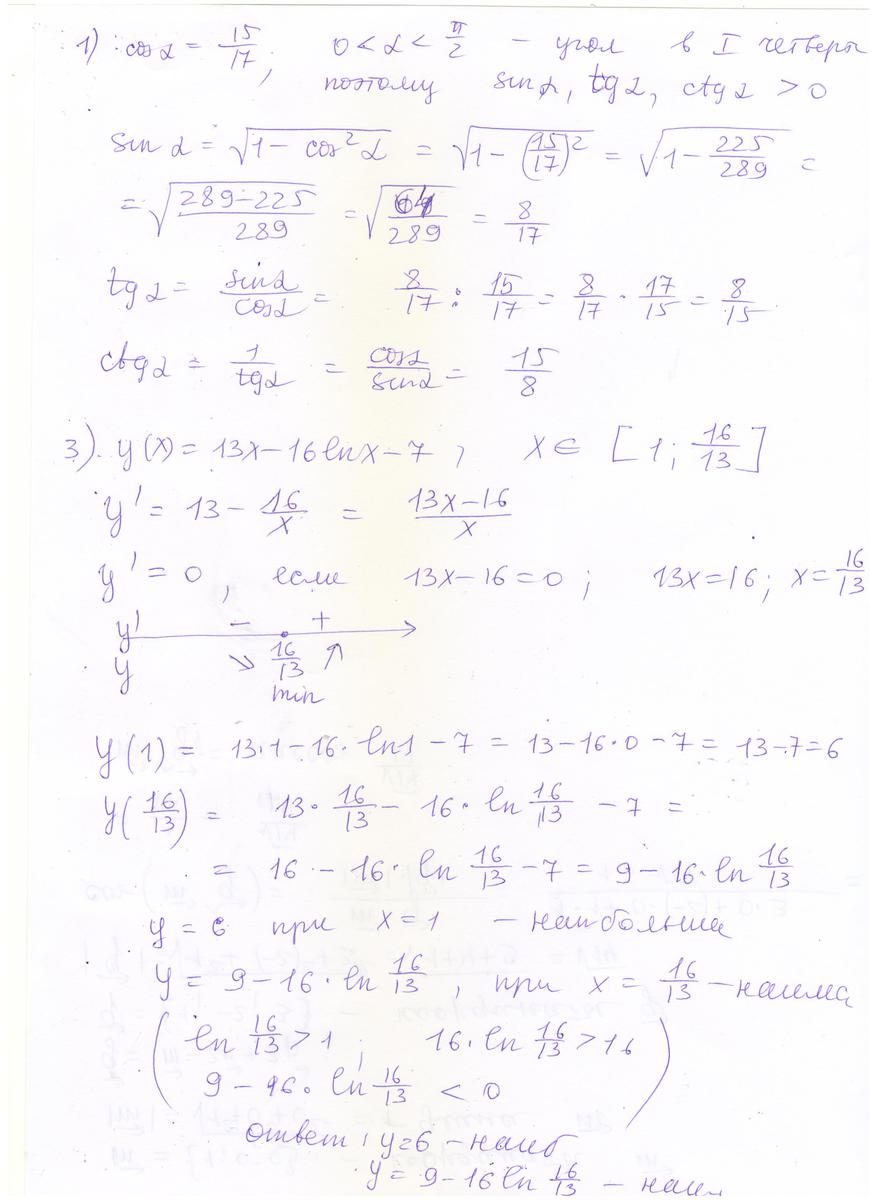 1) cos α = 15/17, 0 < α < π/2 – угол в I четверы
поэтому sin α, tg α, ctg α > 0
sin α = √(1 – cos² α) = √(1 – (15/17)²) = √(1 – 225/289) =
= √((289–225)/289) = √(64/289) = 8/17
tg α = sin α/cos α = 8/17 : 15/17 = 8/17 · 17/15 = 8/15
ctg α = 1/tg α = cos α/sin α = 15/8
3). y(x) = 13x – 16 ln x – 7, x ∈ [1; 16/13]
y' = 13 – 16/x = (13x–16)/x
y' = 0, если 13x–16 = 0; 13x = 16; x = 16/13
y' – +
y ↘ 16/13 ↗
min
y(1) = 13·1 – 16· ln1 – 7 = 13–16·0 –7 = 13–7=6
y(16/13) = 13· 16/13 – 16· ln 16/13 – 7 =
= 16 – 16· ln 16/13 – 7 = 9 – 16· ln 16/13
y = 6 при x = 1 – наибольша
y = 9 – 16· ln 16/13, при x = 16/13 – наима
(ln 16/13 > 1; 16· ln 16/13 > 16
9 – 16· ln 16/13 < 0)
ответ: y=6 – наиб
y = 9 – 16 ln 16/13 – наим